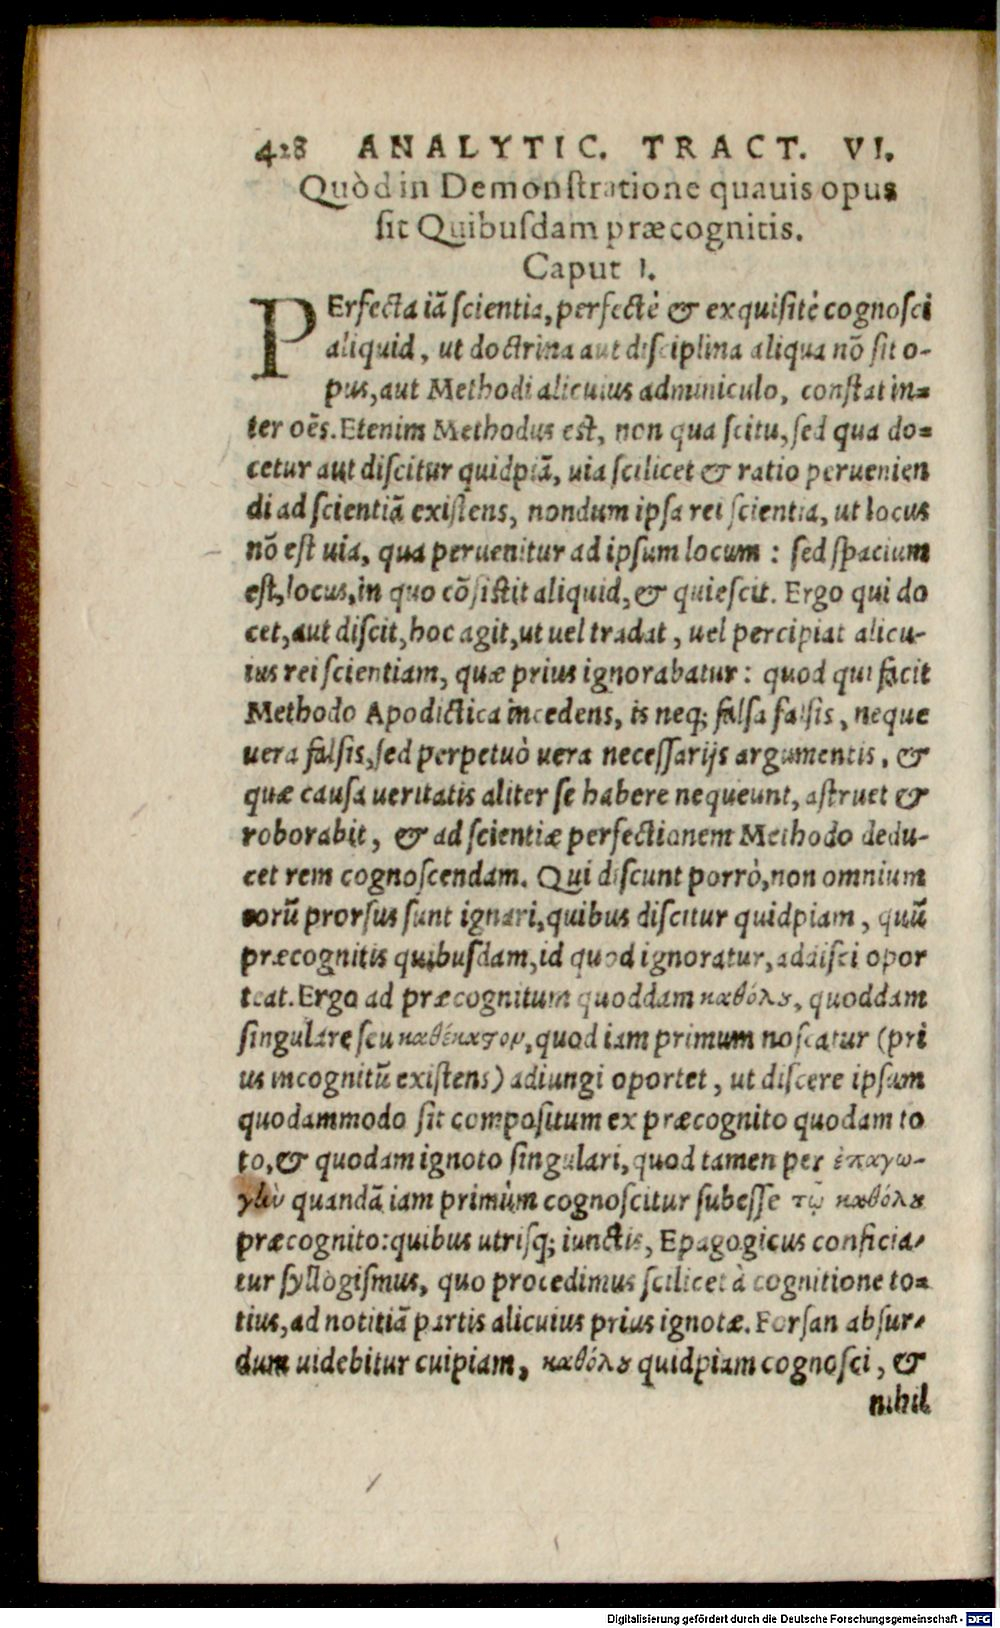 428 ANALYTIC. TRACT. VI.
Quòd in Demonſtratione quauis opus
ſit Quibuſdam præcognitis.
Caput I.
PErfecta iã ſcientia, perfectè & exquiſitè cognoſci
aliquid, ut doctrina aut diſciplina aliqua nõ ſit o-
pus, aut Methodi alicuius adminiculo, conſtat in=
ter oẽs. Etenim Methodus eſt, non qua ſcitu, ſed qua do=
cetur aut diſcitur quidpiã, uia ſcilicet & ratio peruenien
di ad ſcientiã exiſtens, nondum ipſa rei ſcientia, ut locus
nõ eſt uia, qua peruenitur ad ipſum locum : ſed ſpacium
eſt, locus, in quo cõſiſtit aliquid, & quieſcit. Ergo qui do
cet, aut diſcit, hoc agit, ut uel tradat, uel percipiat alicu-
ius rei ſcientiam, quæ prius ignorabatur : quod qui facit
Methodo Apodictica incedens, is neq; falſa falſis, neque
uera falſis, ſed perpetuò uera neceſſarijs argumentis, &
quæ cauſa ueritatis aliter ſe habere nequeunt, aſtruet &
roborabit, & ad ſcientiæ perfectionem Methodo dedu-
cet rem cognoſcendam. Qui diſcunt porrò, non omnium
eorũ prorſus ſunt ignari, quibus diſcitur quidpiam, quũ
præcognitis quibuſdam, id quod ignoratur, addiſci opor
teat. Ergo ad præcognitum quoddam καθόλȣ, quoddam
ſingulare ſeu καθέκαϛον, quod iam primum noſcatur (pri
us incognitũ exiſtens) adiungi oportet, ut diſcere ipſum
quodammodo ſit compoſitum ex præcognito quodam to
to, & quodam ignoto ſingulari, quod tamen per ἐπαγω-
γὴν quandã iam primùm cognoſcitur ſubeſſe τῷ καθόλȣ
præcognito: quibus utriſq; iunctis, Epagogicus conficia-
tur ſyllogiſmus, quo procedimus ſcilicet à cognitione to=
tius, ad notitiã partis alicuius prius ignotæ. Forſan abſur-
dum uidebitur cuipiam, καθόλȣ quidpiam cognoſci, &
nihil
Digitalisierung gefördert durch die Deutsche Forschungsgemeinschaft - DFG